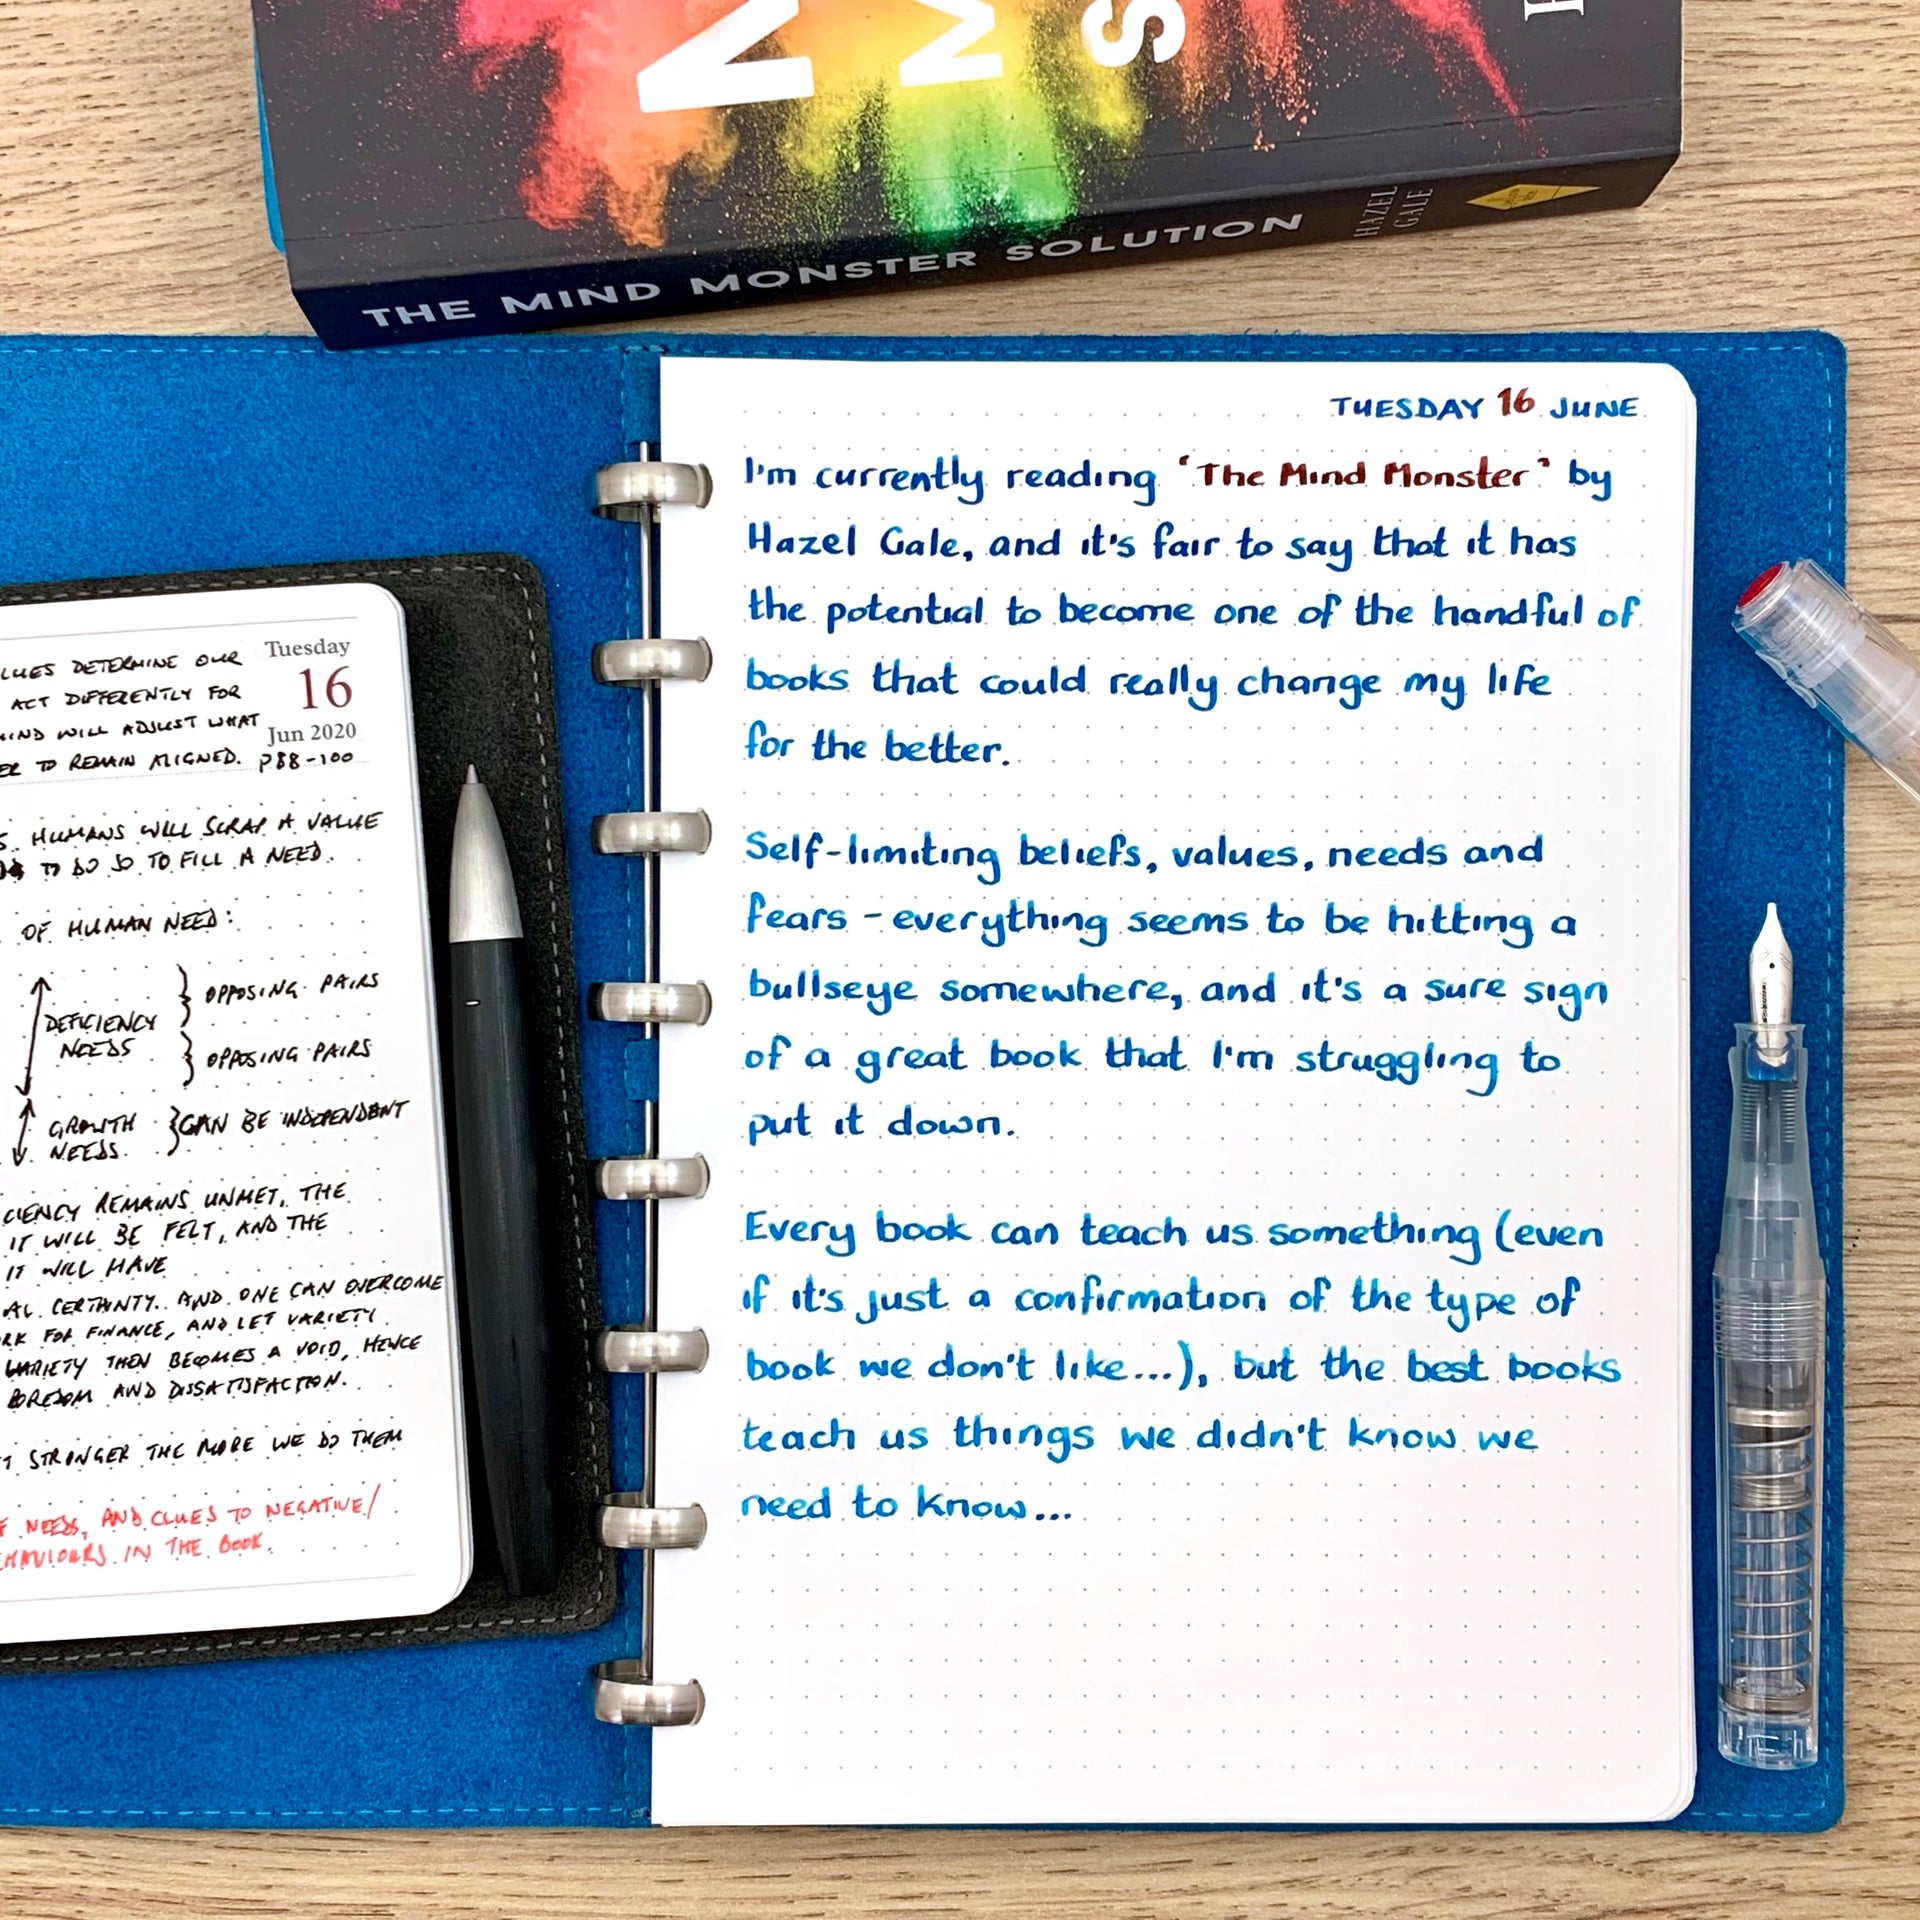 N
M
S
THE MIND MONSTER SOLUTION
HAZEL
GALE
TUESDAY 16 JUNE
I'm currently reading 'The Mind Monster' by
Hazel Gale, and it's fair to say that it has
the potential to become one of the handful of
books that could really change my life
for the better.
Self-limiting beliefs, values, needs and
fears - everything seems to be hitting a
bullseye somewhere, and it's a sure sign
of a great book that I'm struggling to
put it down.
Every book can teach us something (even
if it's just a confirmation of the type of
book we don't like...), but the best books
teach us things we didn't know we
need to know...
Tuesday
16
Jun 2020
DETERMINE OUR
ACT DIFFERENTLY FOR
WILL ADJUST WHAT
TO REMAIN ALIGNED. P88-100
HUMANS WILL SCRAP A VALUE
TO DO SO TO FILL A NEED.
OF HUMAN NEED:
DEFICIENCY
NEEDS
OPPOSING PAIRS
OPPOSING PAIRS
GROWTH
NEEDS.
CAN BE INDEPENDENT
CIENCY REMAINS UNMET, THE
IT WILL BE FELT, AND THE
IT WILL HAVE
AL CERTAINTY. AND ONE CAN OVERCOME
RK FOR FINANCE, AND LET VARIETY
VARIETY THEN BECOMES A VOID, HENCE
BOREDOM AND DISSATISFACTION.
STRONGER THE MORE WE DO THEM
NEEDS, AND CLUES TO NEGATIVE/
EHAVIOURS IN THE BOOK.